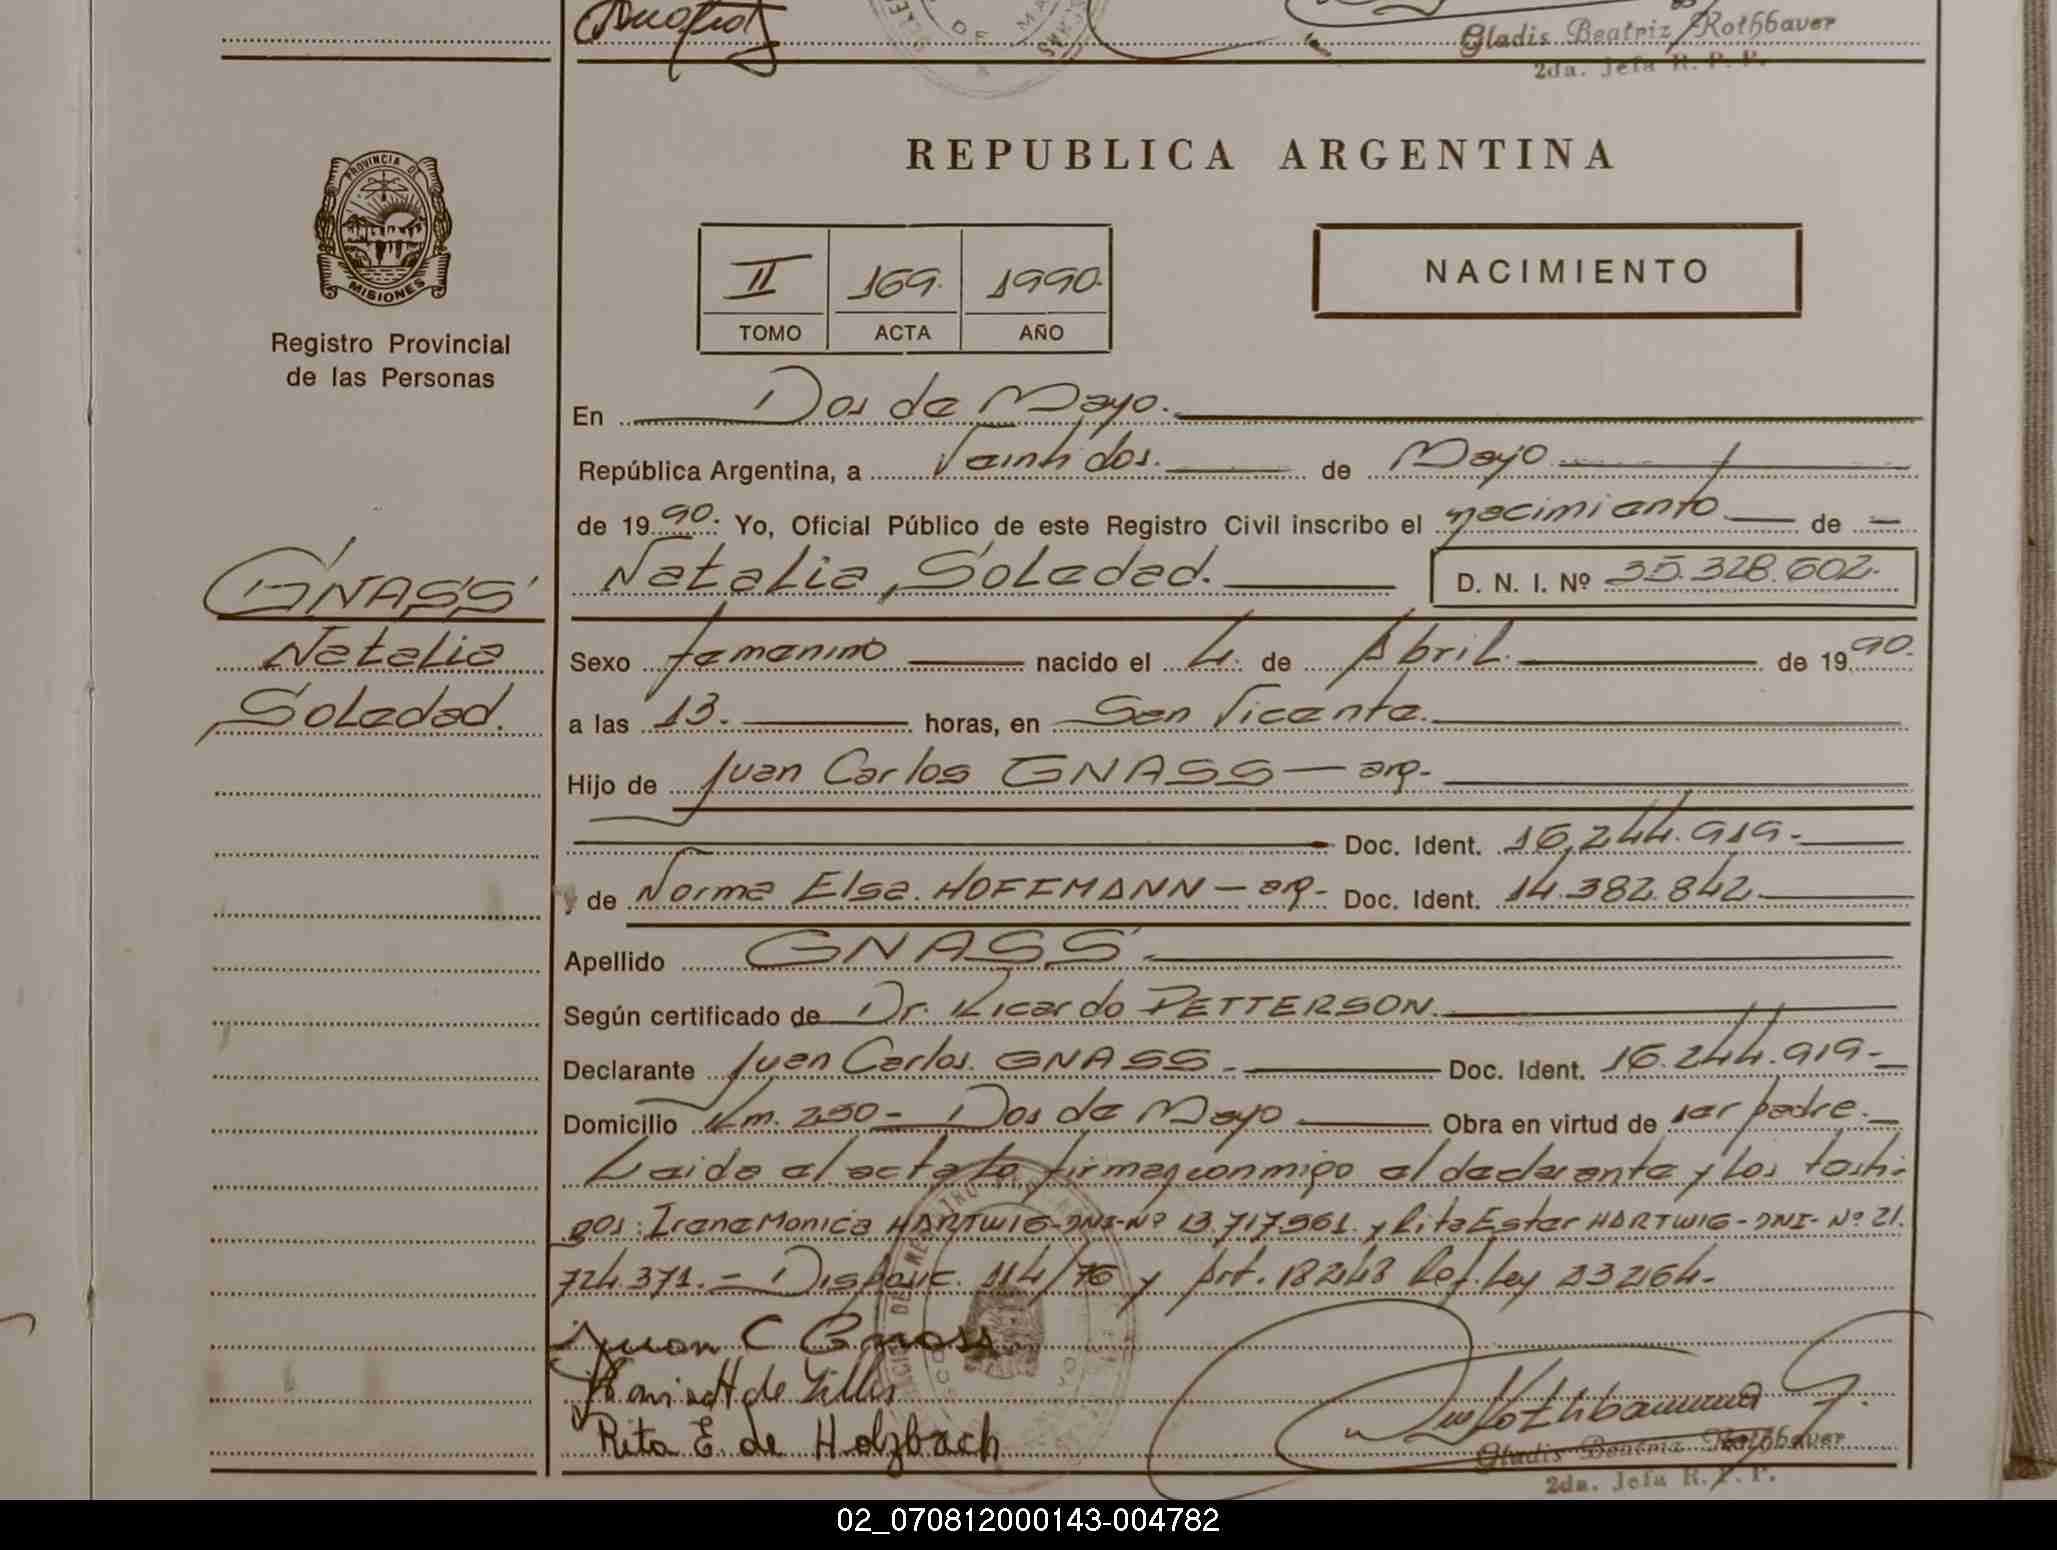 Gladis Beatriz Rothbauer
2da. Jefa R. P. P.
PROVINCIA DE
MISIONES
Registro Provincial
de las Personas
REPUBLICA ARGENTINA
NACIMIENTO
II 169. 1990.
TOMO ACTA AÑO
En Dos de Mayo.
República Argentina, a Veinti dos. de Mayo
de 1990. Yo, Oficial Público de este Registro Civil inscribo el nacimiento de
Natalia Soledad. D. N. I. Nº 35.328.602.
GNASS
Natalia
Soledad.
Sexo femenino nacido el 4. de Abril. de 1990.
a las 13. horas, en San Vicente.
Hijo de Juan Carlos GNASS - arg.
Doc. Ident. 16.244.919-
y de Norma Elsa. HOFFMANN - arg- Doc. Ident. 14.382.842-
Apellido GNASS
Según certificado de Dr. Ricardo PETTERSON.
Declarante Juan Carlos. GNASS - Doc. Ident. 16.244.919-
Domicilio Km. 250- Dos de Mayo Obra en virtud de ser padre.
Leida el acta la firman conmigo el declarante y los testi-
gos: Irene Monica HARTWIG-DNI-Nº 13.717.561. y Rita Ester HARTWIG-DNI-Nº 21.
724.371.- Disposic. 114/76 y Art. 18248 Ref. Ley 23264-
Juan C Gnass
Rita E. de Holzbach
Gladis Beatriz Rothbauer
2da. Jefa R. P. P.
02_070812000143-004782